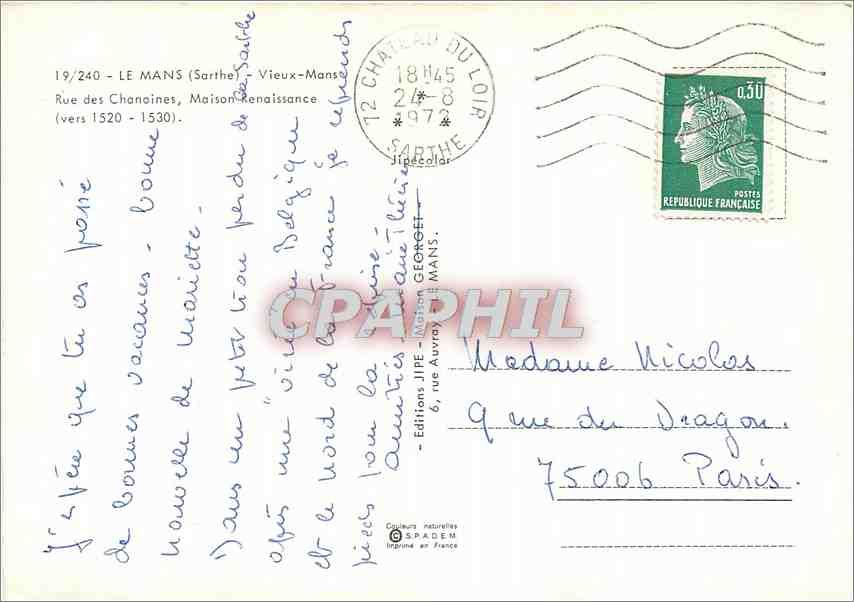 19/240 - LE MANS (Sarthe), Vieux-Mans
Rue des Chanoines, Maison Renaissance
(vers 1520 - 1530).
72 CHATEAU DU LOIR
18H45
24-8
1972
SARTHE
0,30
POSTES
REPUBLIQUE FRANÇAISE
Jipécolor
J'espère que tu as passé
de bonnes vacances - bonne
nouvelle de Mariette -
Dans un petit trou perdu de la Sarthe
après une virée en Belgique
et le nord de la France je reprends
pieds pour la
amitiés Marie
- Editions JIPE - Maison GEORGET -
6, rue Auvray - LE MANS.
CPAPHIL
Madame Nicolas
9 rue du Dragon.
75006 Paris.
Couleurs naturelles
© S.P.A.D.E.M.
Imprimé en France